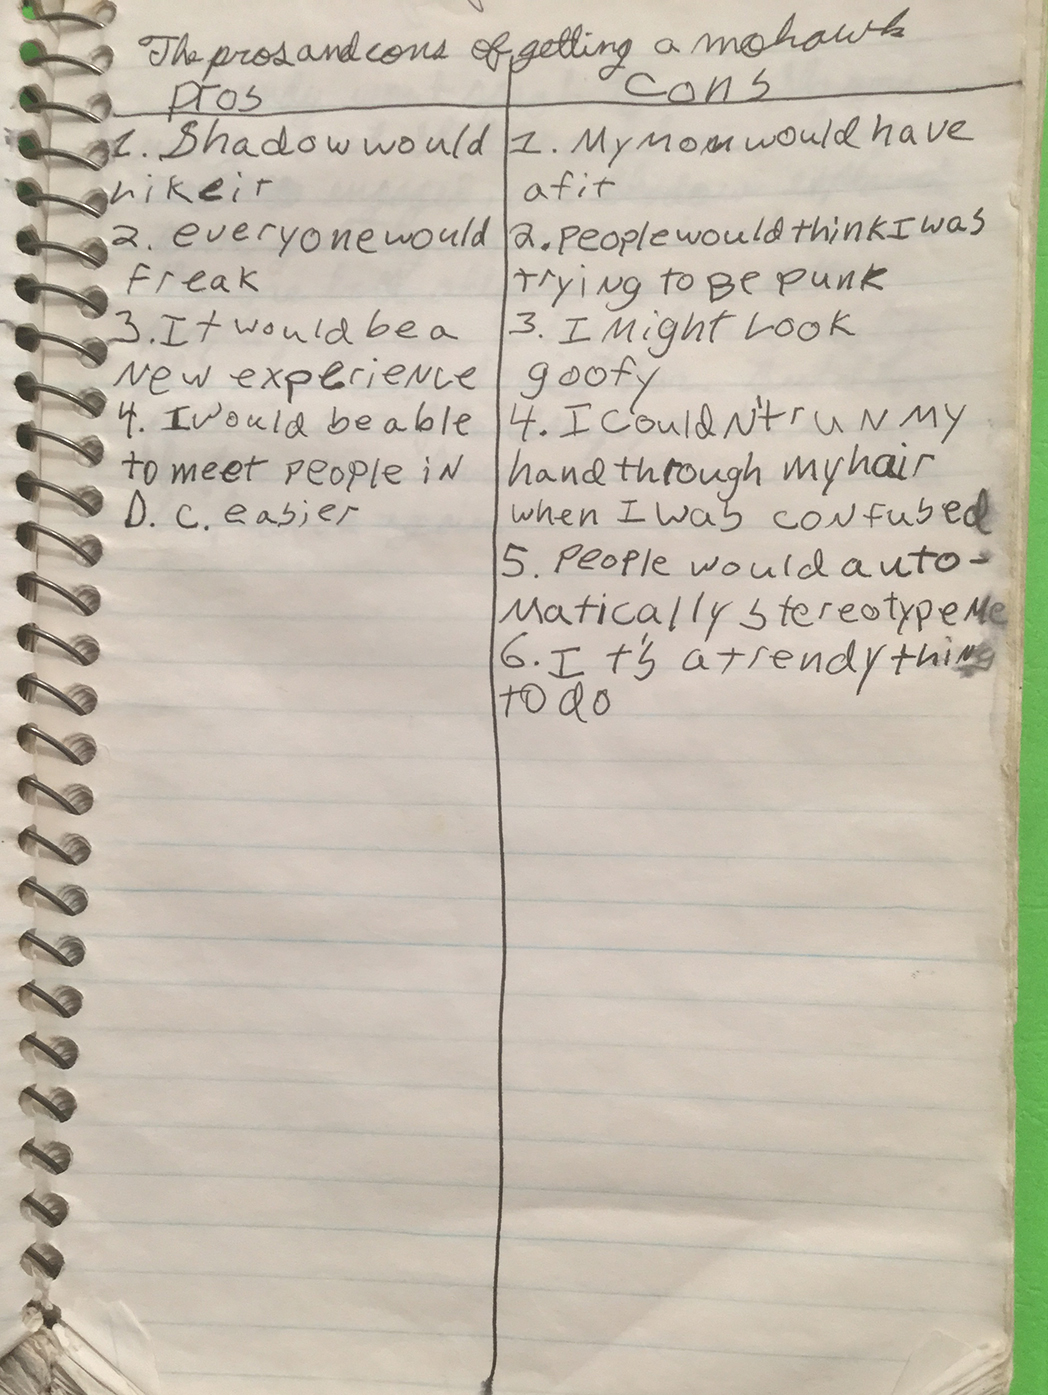 The pros and cons of getting a mohawk
Pros
1. Shadow would
like it
2. everyone would
freak
3. It would be a
New experience
4. I would be able
to meet people in
D.C. easier
Cons
1. My mom would have
a fit
2. People would think I was
trying to Be punk
3. I Might Look
goofy
4. I couldn't run My
hand through My hair
when I was confused
5. People would auto-
matically stereotype Me
6. It's a trendy thing
to do